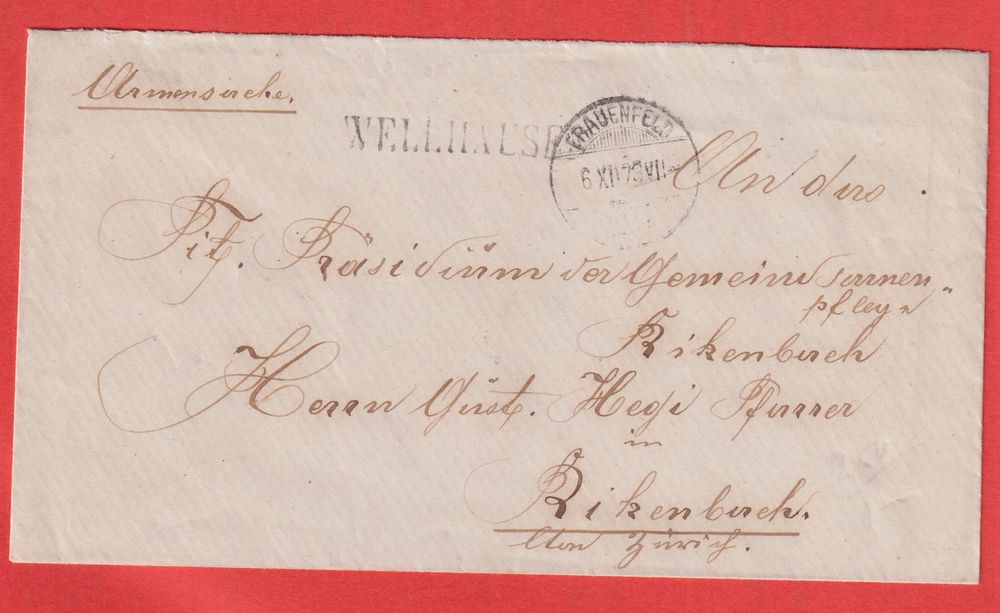 Armensache.
WELLHAUSE
FRAUENFELD
6 XII 73 VII
An das
Tit. Präsidiüm der Gemeindsarmen-
pflege
Rikenbach
Herrn Güst. Hegi Pfarrer
in
Rikenbach.
Cton Zürich.